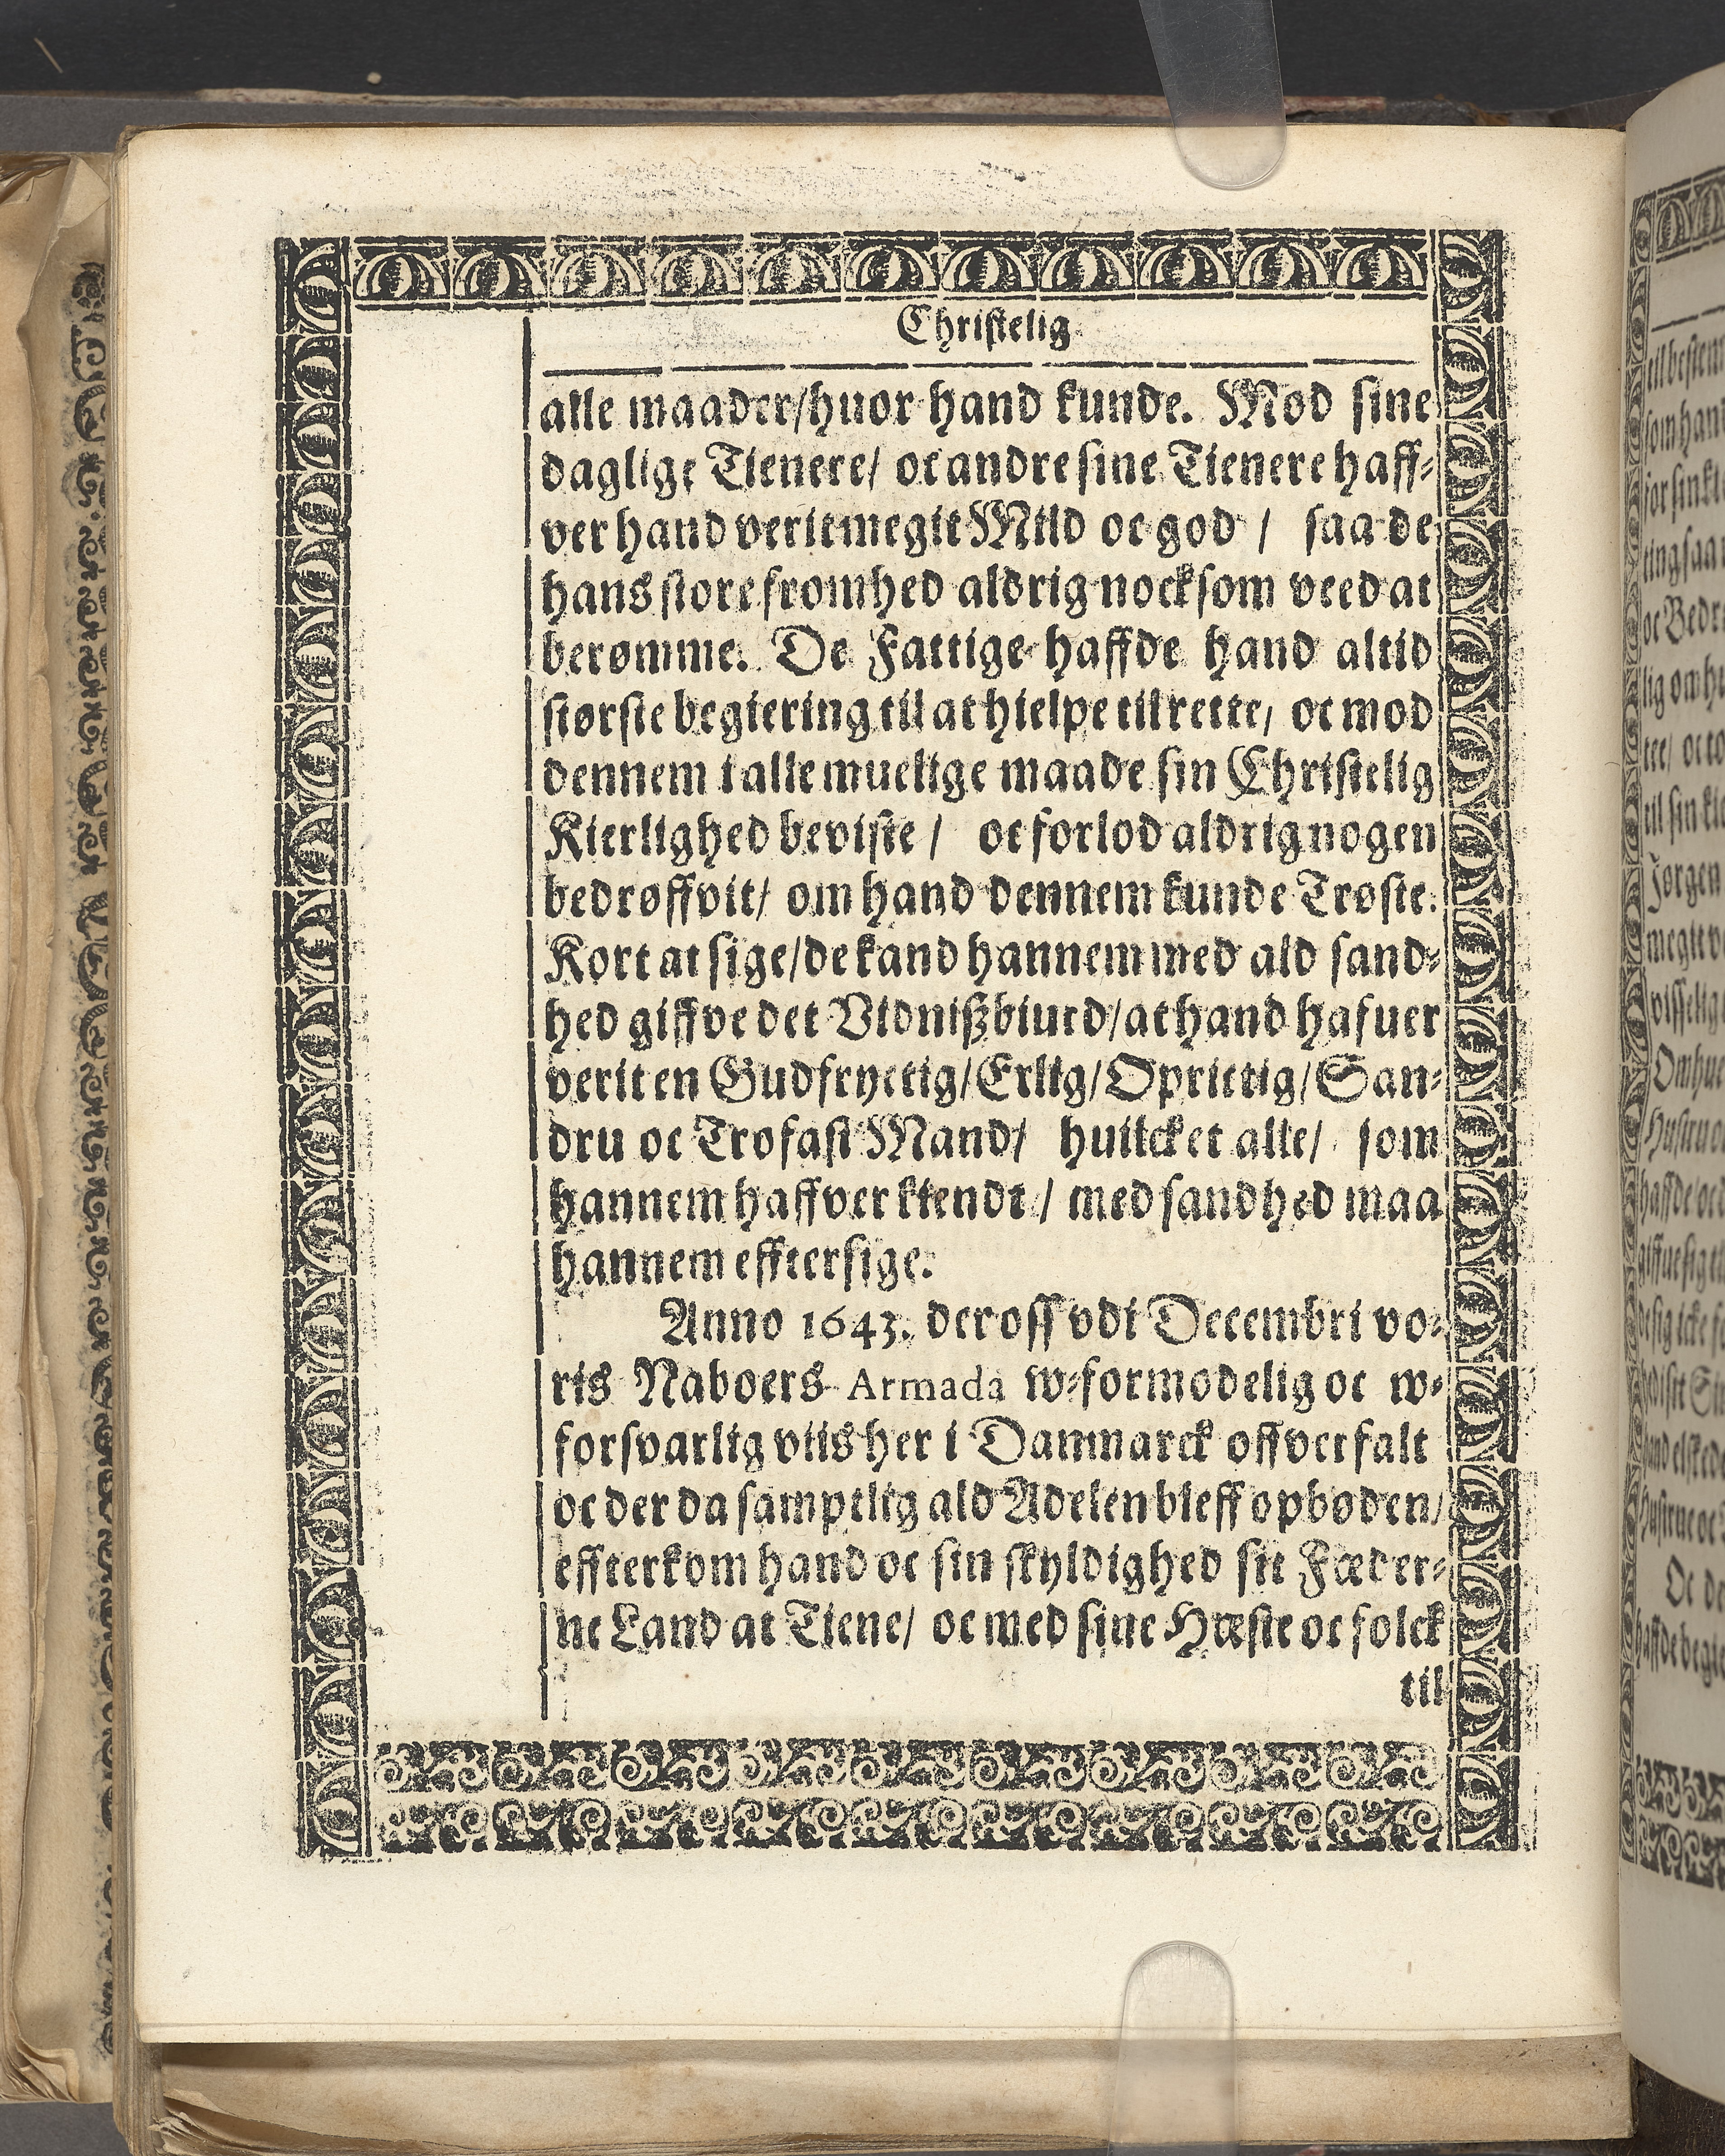 Christelig
alle maader/huor hand kunde. Mod sine
daglige Tienere/ oc andre sine Tienere haff-
ver hand verit megit Mild oc god / saa de
hans store fromhed aldrig nocksom veed at
berømme. De Fattige haffde hand altid
største begiering til at hielpe til rette, oc mod
dennem i alle muelige maade sin Christelig
Kierlighed beviste / oc forlod aldrig nogen
bedrøffvit/ om hand dennem kunde Trøste.
Kort at sige/de kand hannem med ald sand-
hed giffve det Vidnißbiurd/at hand hafuer
verit en Gudfryctig/Erlig/Oprictig/San-
dru oc Trofast Mand/ huilcket alle/ som
hannem haffver kiendt / med sandhed maa
hannem efftersige.
Anno 1643. der oss vdi Decembri vo-
ris Naboers Armada w-formodelig oc w-
forsvarlig viis her i Danmarck offverfalt
oc der da samptlig ald Adelen bleff opbøden/
effterkom hand oc sin skyldighed sit Fæder-
ne Land at Tiene/ oc med sine Hæste oc folck
til